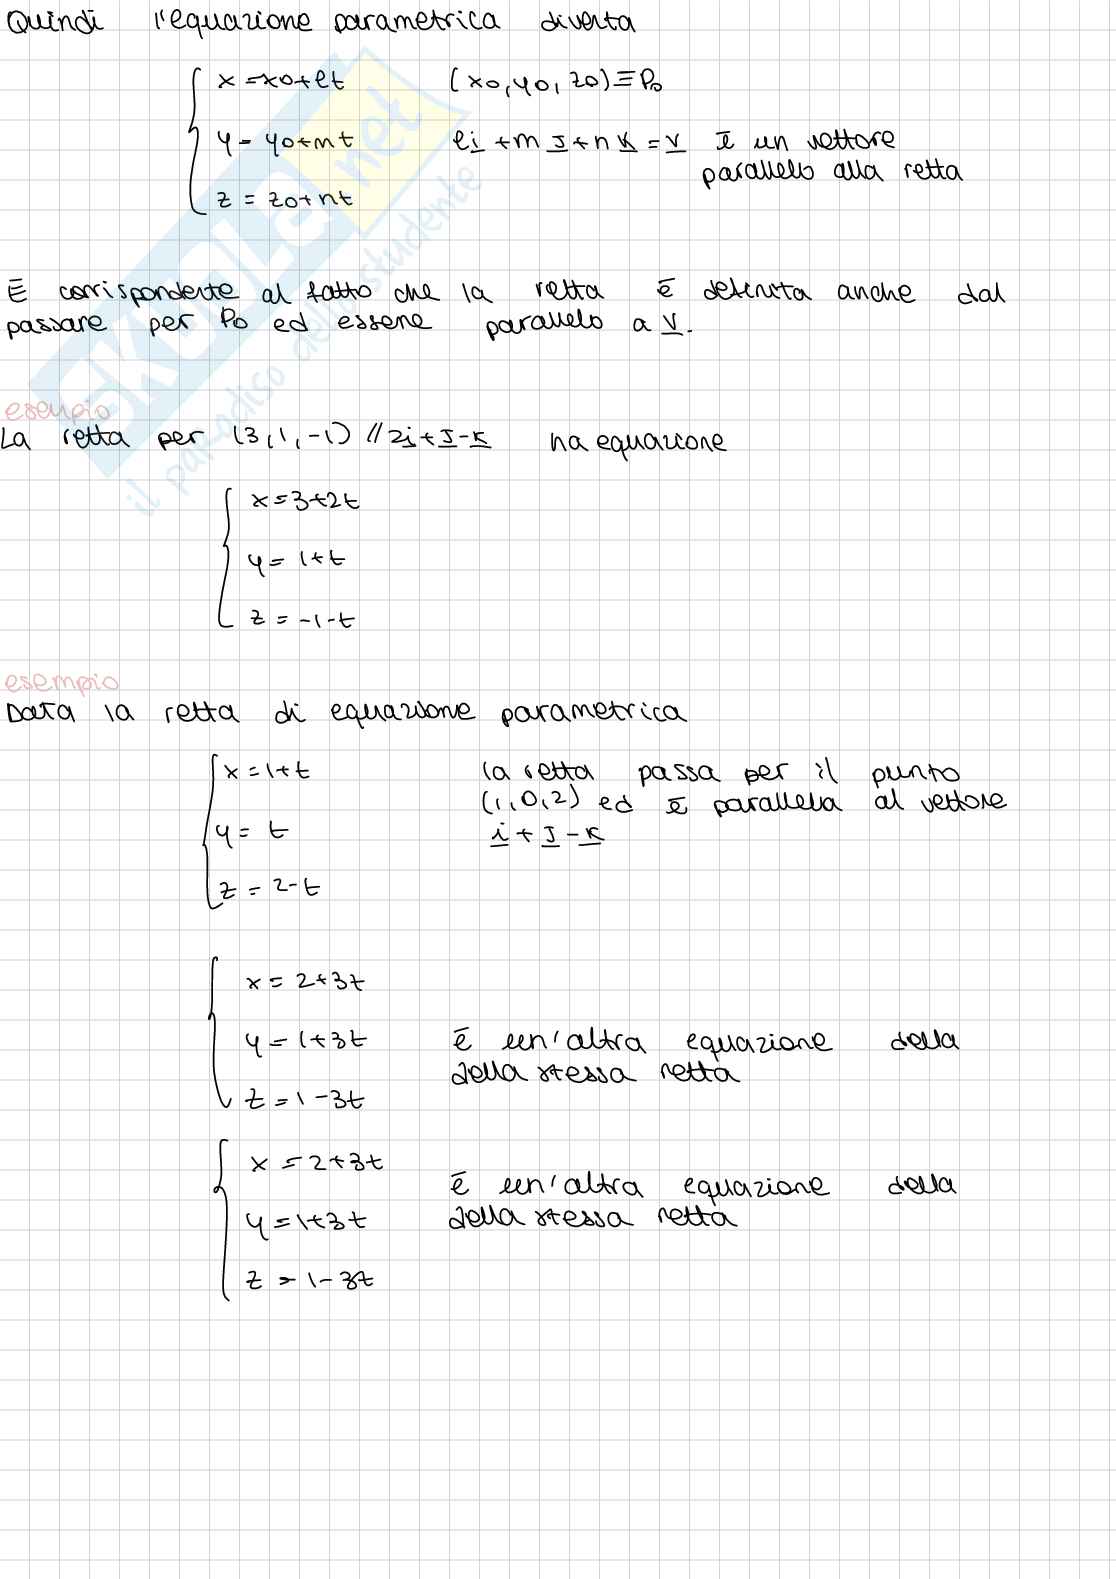 Quindi l'equazione parametrica diventa
x = x0 + lt (x0, y0, z0) ≡ P0
y = y0 + mt li + mJ + nK = v È un vettore
parallelo alla retta
z = z0 + nt
È corrispondente al fatto che la retta è definita anche dal
passare per P0 ed essere parallelo a v.
esempio
La retta per (3, 1, -1) // 2i + J - K ha equazione
x = 3 + 2t
y = 1 + t
z = -1 - t
esempio
Data la retta di equazione parametrica
x = 1 + t la retta passa per il punto
(1, 0, 2) ed è parallela al vettore
y = t i + J - K
z = 2 - t
x = 2 + 3t
y = 1 + 3t è un'altra equazione della
della stessa retta
z = 1 - 3t
x = 2 + 3t
è un'altra equazione della
y = 1 + 3t della stessa retta
z = 1 - 3t
skuola.net
il paradiso dello studente